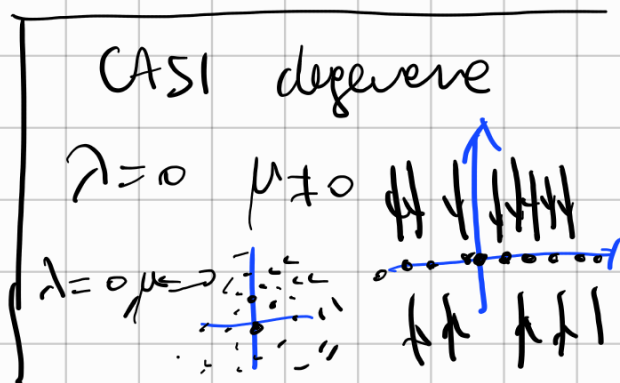 CASI degenere
λ=0 μ≠0
λ=0 μ=0